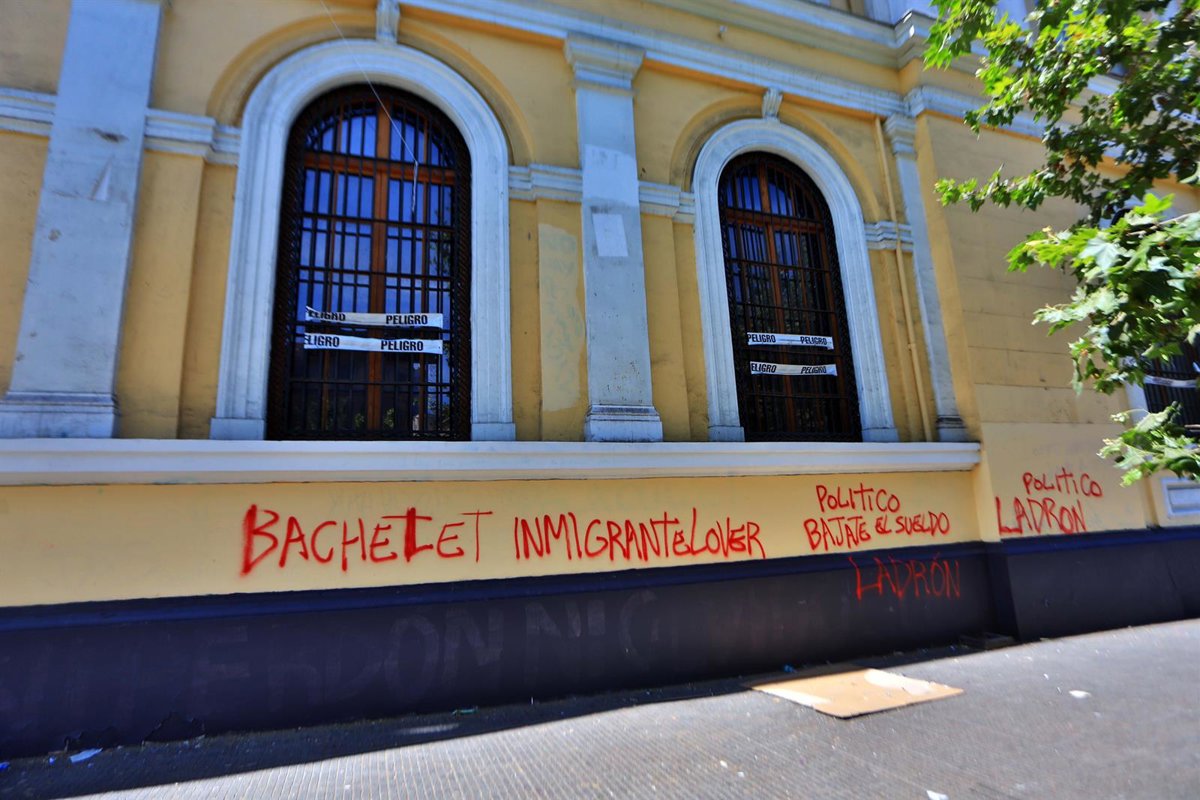 PELIGRO PELIGRO
ELIGRO PELIGRO
PELIGRO PELIGRO
ELIGRO PELIGRO
BACHELET INMIGRANTELOVER
POLITICO
BAJATE EL SUELDO
LADRÓN
POLITICO
LADRON
PERDON NI